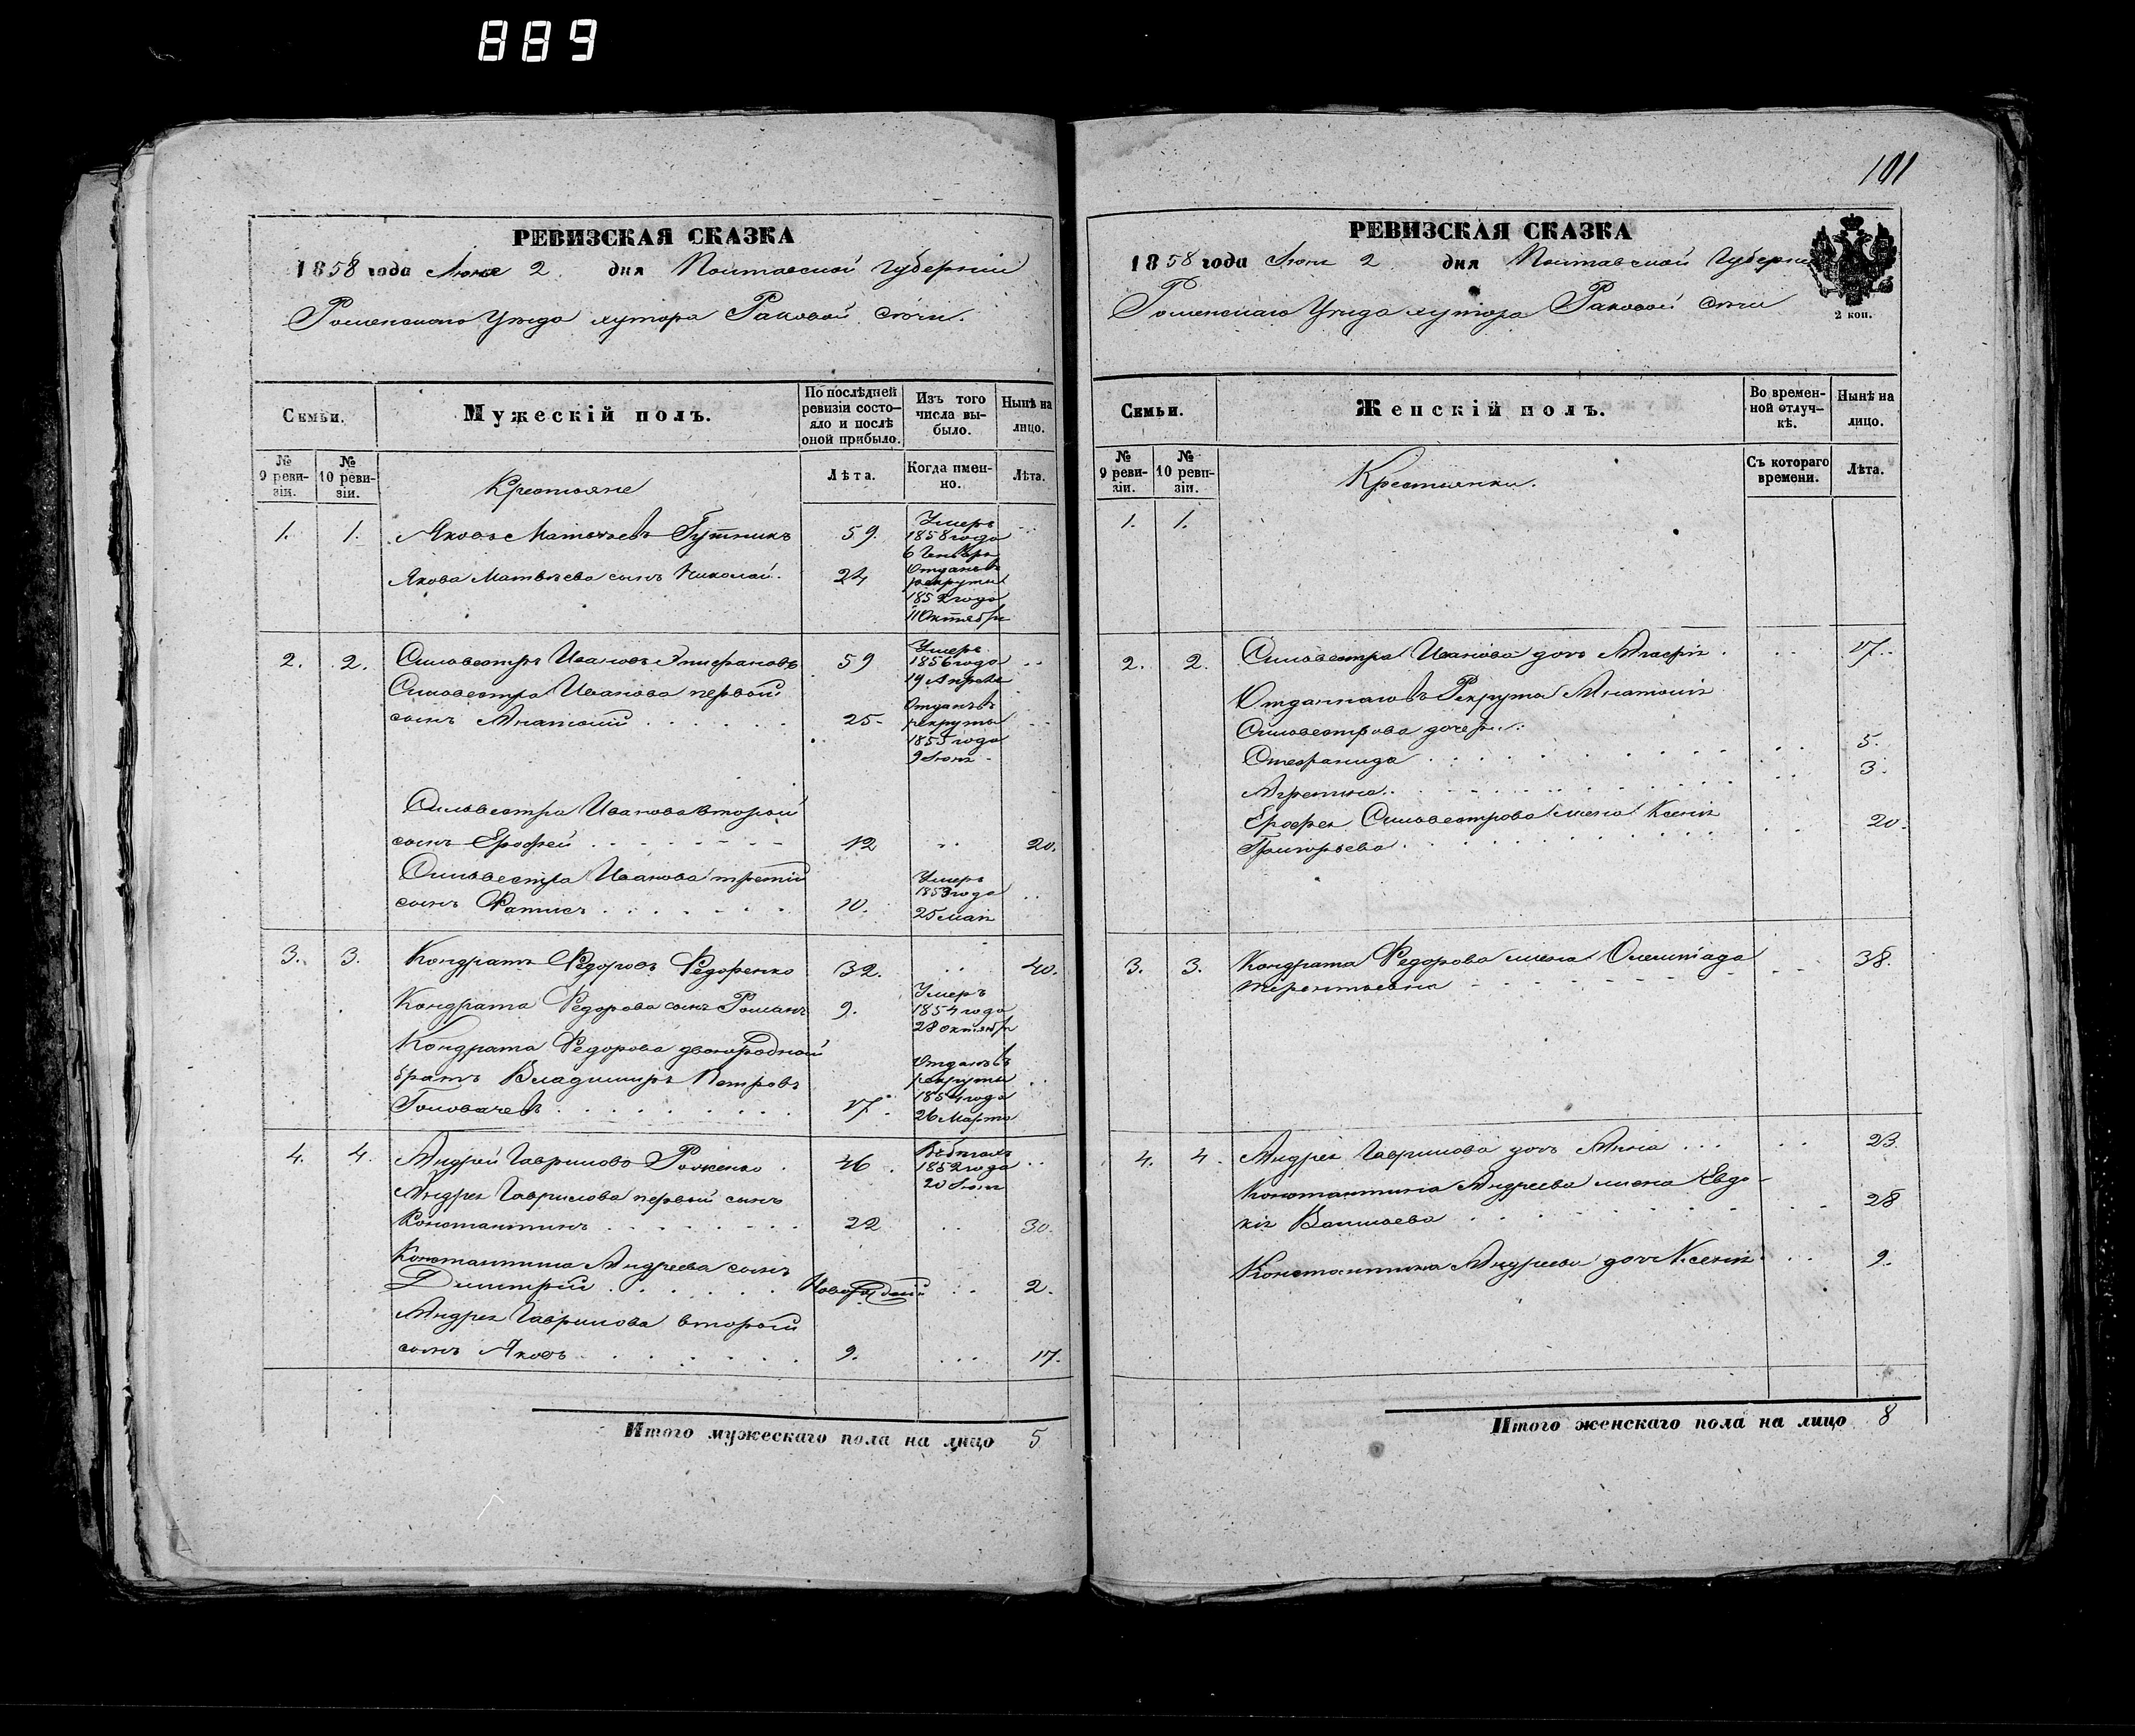 889
101
РЕВИЗСКАЯ СКАЗКА
1858 года Июня 2 дня Полтавской Губерніи
Роменскаго Уѣзда хутора Раковой Сѣчи.
Семьи.
Мужескій полъ.
По послѣдней ревизіи состо-
яло и послѣ оной прибыло.
Изъ того числа вы-
было.
Нынѣ на лицо.
№ 9 реви-
зіи.
№ 10 реви-
зіи.
Крестьяне
Лѣта.
Когда имен-
но.
Лѣта.
1. 1. Яковъ Матвѣевъ 59. Умеръ
1858 года
6 Генваря
Якова Матвѣева сынъ Николай. 24 Отданъ въ
рекруты
1852 года
11 Октября
2. 2. Сильвестръ Ивановъ Епифановъ 59 Умеръ
1856 года
19 Апреля
Сильвестра Иванова первой
сынъ Анатолий 25 Отданъ въ
рекруты
1855 года
9 Июня
Сильвестра Иванова второй
сынъ Ерофей 12 20.
Сильвестра Иванова третій
сынъ 10. Умеръ
1853 года
25 Мая
3. 3. Кондратъ Федоровъ Федоренко 32. 40.
Кондрата Федорова сынъ Романъ 9. Умеръ
1854 года
28 октября
Кондрата Федорова двоюродной
братъ Владимиръ Петровъ
Головачевъ 17. Отданъ въ
рекруты
1854 года
26 Марта
4. 4. Андрей Гавриловъ 46. Въ бѣгахъ
1852 года
20 Июня
Андрея Гаврилова первый сынъ
Константинъ 22 30.
Константина Андреева сынъ
Димитрій Новорожденный 2.
Андрея Гаврилова второй
сынъ Яковъ 9. 17.
Итого мужескаго пола на лицо 5
РЕВИЗСКАЯ СКАЗКА
1858 года Июня 2 дня Полтавской Губерніи
2 коп.
Роменскаго Уѣзда хутора Раковой Сѣчи
Семьи.
Женскій полъ.
Во времен-
ной отлуч-
кѣ.
Нынѣ на лицо.
№ 9 реви-
зіи.
№ 10 реви-
зіи.
Крестьянки.
Съ котораго времени.
Лѣта.
1. 1.
2. 2. Сильвестра Иванова дочь Глафира 17.
Отданнаго въ Рекруты Анатолія
Сильвестрова дочери:
Стефанида 5.
Агрепина 3.
Ерофея Сильвестрова жена Ксенія
Григорьева 20.
3. 3. Кондрата Федорова жена Олимпіада
Терентьевна 38.
4. 4. Андрея Гаврилова дочь Анна 23.
Константина Андреева жена Евдо-
кія Васильева 28
Константина Андреева дочь Ксенія 9.
Итого женскаго пола на лицо 8